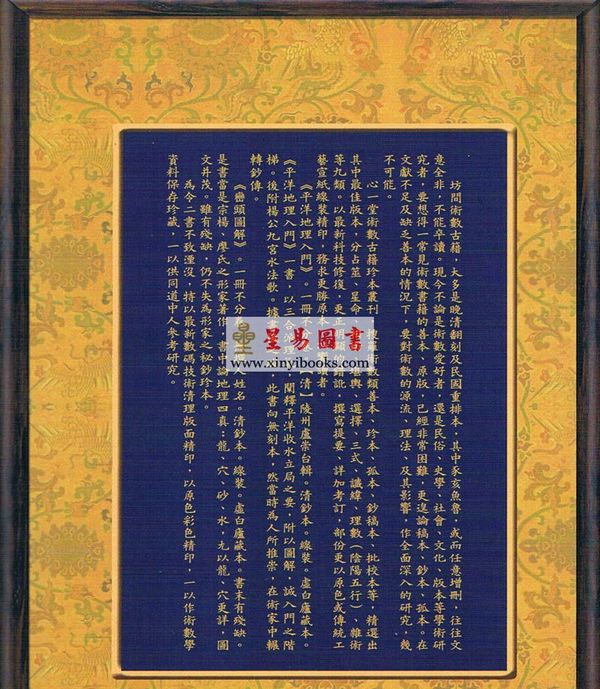 坊間術數古籍，大多是晚清翻刻及民國重排本，其中豕亥魚魯，或而任意增刪，往往文
意全非，不能卒讀。現今不論是術數愛好者，還是民俗、史學、社會、文化、版本等學術研
究者，要想得一常見術數書籍的善本、原版，已經非常困難，更遑論稿本、鈔本、孤本。在
文獻不足及缺乏善本的情況下，要對術數的源流、理法、及其影響，作全面深入的研究，幾
不可能。
心一堂術數古籍珍本叢刊
術數類善本、珍本、孤本、鈔稿本、批校本等，精選出
其中最佳版本，分占筮、星命、
堪輿、選擇、三式、讖緯、理數（陰陽五行）、雜術
等九類。以最新科技修復，更正明顯的錯訛，撰寫提要、詳加考訂，部份更以原色或傳統工
藝宣紙線裝精印，務求更勝原本
讀者。
《平洋地理入門》。一冊不分
清】陵州盧崇台輯。清鈔本。線裝。虛白廬藏本。
《平洋地理入門》一書，以三合派理
闡釋平洋收水立局之要，附以圖解，誠入門之階
梯。後附楊公九宮水法歌。據
此書向無刻本，然當時為人所推崇，在術家中輾
轉鈔傳。
《巒頭圖解》。一冊不分
姓名。清鈔本。線裝。虛白廬藏本。書末有殘缺。
是書當是宗楊、廖氏之形家著作，書中論地理四真；龍、穴、砂、水，尤以龍、穴更詳，圖
文并茂。雖有殘缺，仍不失為形家之秘鈔珍本。
為令二書不致湮沒，特以最新數碼技術清理版面精印，以原色彩色精印，一以作術數學
資料保存珍藏，一以供同道中人參考研究。
星易圖書
www.xinyibooks.com